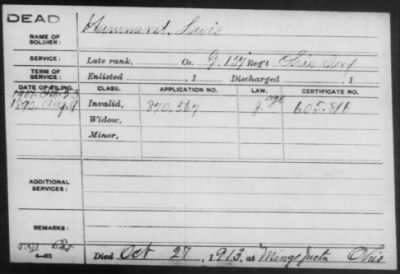 DEAD
NAME OF SOLDIER: Hammond, Lewis
SERVICE: Late rank, Co. G, 129 Reg't Ohio Inf
TERM OF SERVICE: Enlisted , 1 Discharged , 1
DATE OF FILING. CLASS. APPLICATION NO. LAW. CERTIFICATE NO.
1907
1890, Aug 9 Invalid, 870.567 605.811
Widow,
Minor,
ADDITIONAL SERVICES:
REMARKS:
Died Oct 27, 1913, at Mingo Junctn Ohio